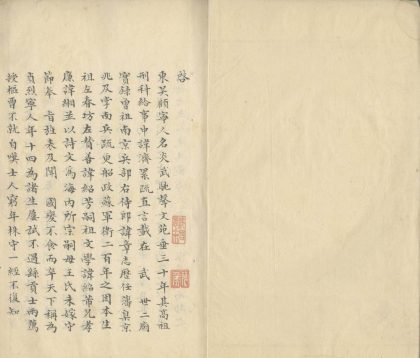 啓
東吳顧寧人名炎武馳聲文苑垂三十年其高祖
刑科給事中諱濟累疏直言載在 武 世二廟
實錄曾祖南京兵部右侍郎諱章志歷任藩臬京
兆及掌南兵疏更船政蘇軍衛二百年之困本生
祖左春坊左贊善諱紹芳嗣祖文學諱紹芾兄孝
廉諱緗並以詩文為海內所宗嗣母王氏未嫁守
節奉 旨旌表及聞 國變不食而卒天下稱為
貞烈寧人年十四為諸生屢試不遇繇貢士兩薦
授樞曹不就自嘆士人窮年株守一經不復知